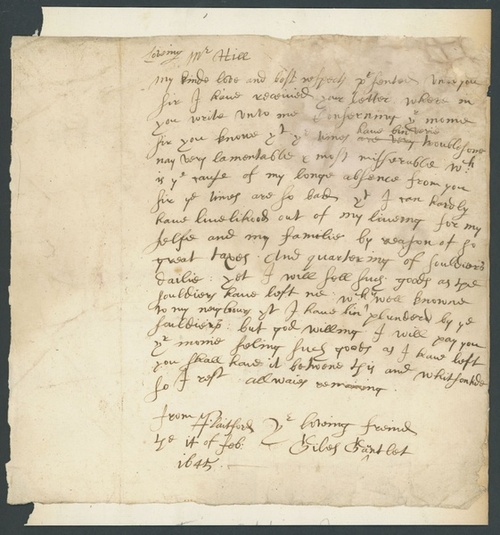 Loving Mr Hill
My kinde love and best respects presented unto you
Sir I have received your Letter where in
you write unto me Conserning yr monie
Sir you know yt ye times have bin verie are very troublesome
nay very lamentable & most misserable wch
is ye cause of my longe absence from you
Sir ye times are so bad yt I can hardly
have livelihood out of my liveing for my
selfe and my familie by reason of so
great taxes And quartering of souldiers
dailie: yet I will sell such goods as the
souldiers have left me wch is well knowne
to my neyburs yt I have bin plundered by ye
souldiers: but god willing I will pay you
yr monie seling such goods as I have left
you shall have it betweene this and whitsontide
so I rest allwaies remaining
From yr loving friend
the of Feb: Giles Gantlet
1645